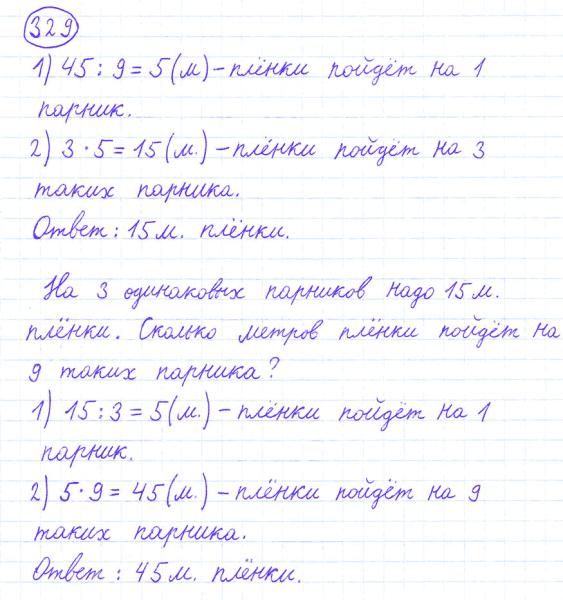 329
1) 45 : 9 = 5 (м) – плёнки пойдёт на 1
парник.
2) 3 · 5 = 15 (м.) – плёнки пойдёт на 3
таких парника.
Ответ : 15 м. плёнки.
На 3 одинаковых парников надо 15 м.
плёнки. Сколько метров плёнки пойдёт на
9 таких парника?
1) 15 : 3 = 5 (м.) – плёнки пойдёт на 1
парник.
2) 5 · 9 = 45 (м.) – плёнки пойдёт на 9
таких парника.
Ответ : 45 м. плёнки.